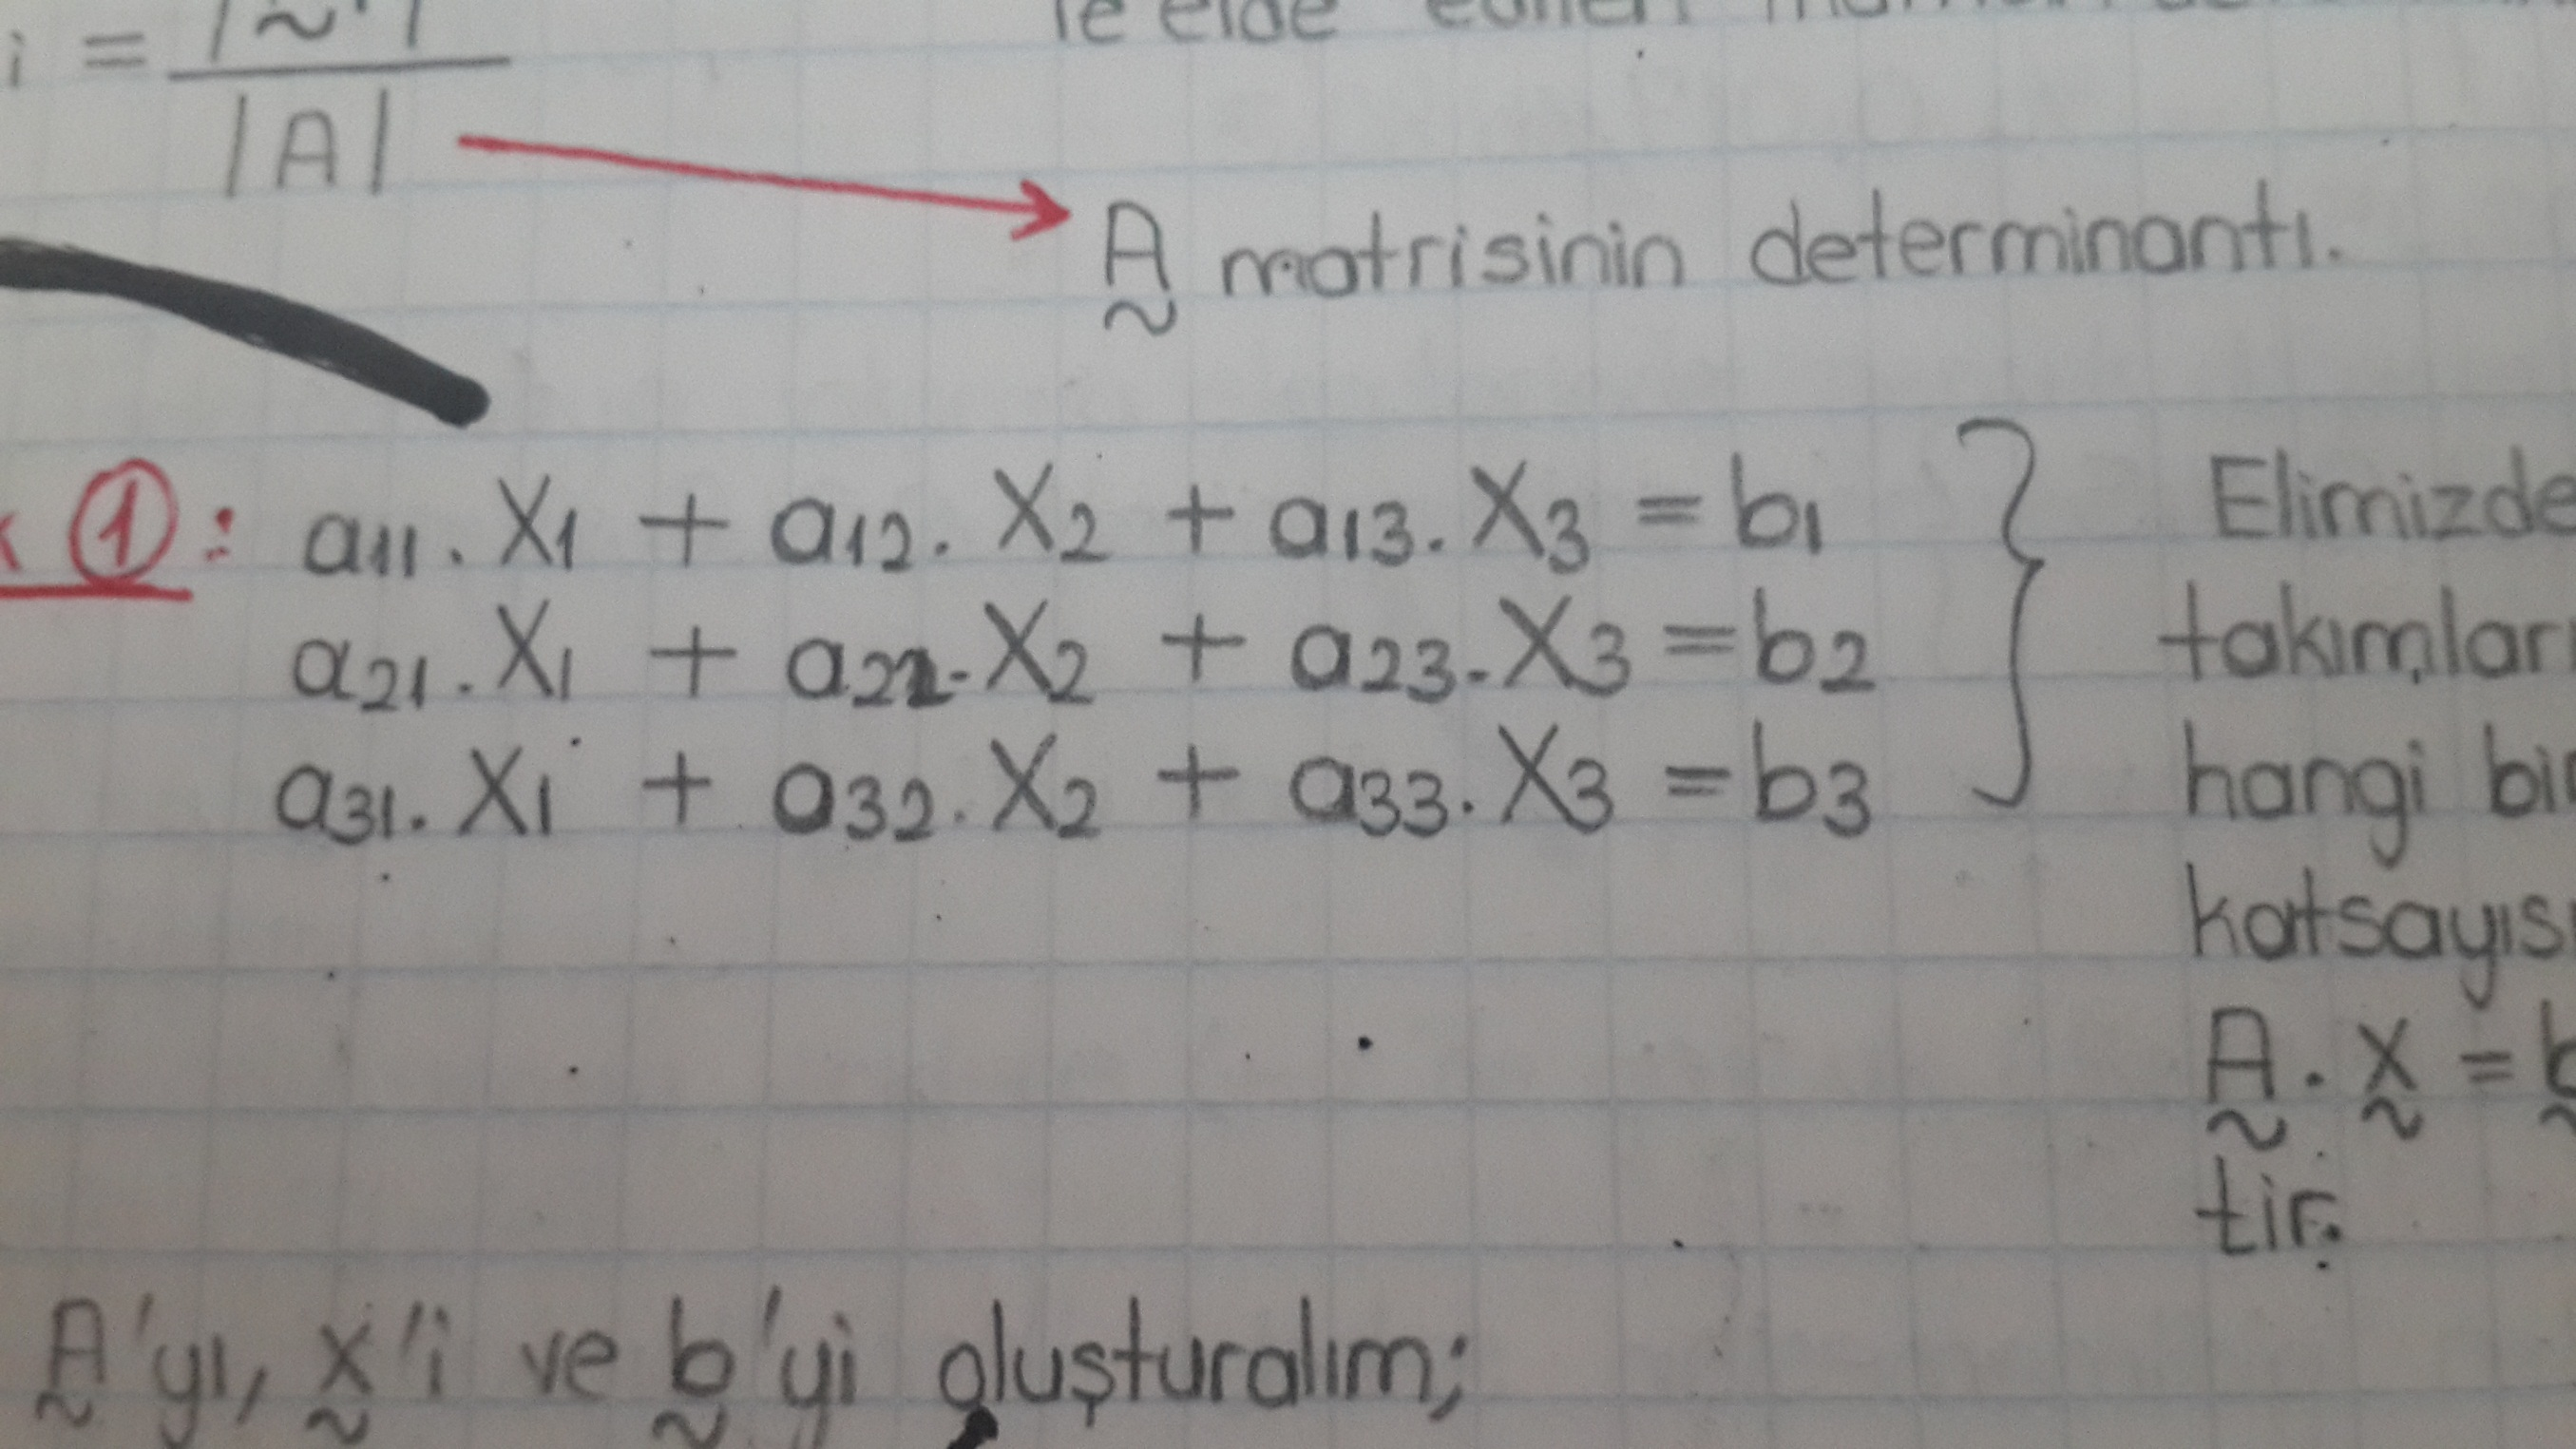 i = |A|
A matrisinin determinantı.
①: a11. X1 + a12. X2 + a13. X3 = b1
a21. X1 + a22. X2 + a23. X3 = b2
a31. X1 + a32. X2 + a33. X3 = b3
Elimizde
takımları
hangi bir
katsayıs
A. X = b
tir.
A'yı, x'i ve b'yi oluşturalım;